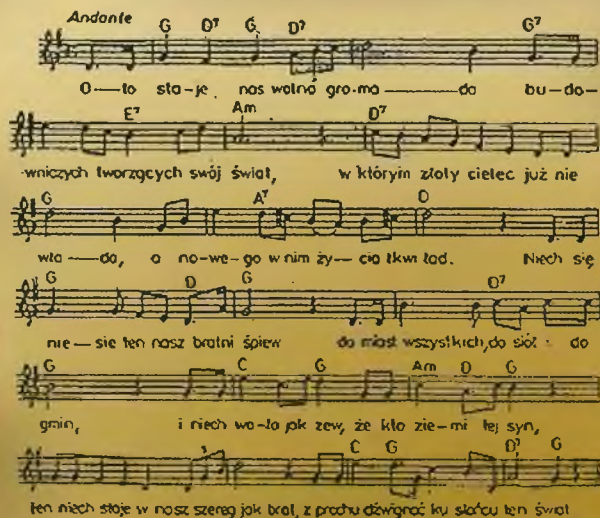 Andante
G D7 G D7 G7
O—to sta-je nas wolna gro-ma——da bu-do-
E7 Am D7
-wniczych tworzących swój świat, w którym złoty cielec już nie
G A7 D
wła——da, a no-we-go w nim ży—cia tkwi ład. Niech się
G D G D7
nie—sie ten nasz bratni śpiew do miast wszystkich, do siół - do
G C G Am D G
gmin, i niech wo-ła jak zew, że kto zie-mi tej syn,
C G D7 G
ten niech staje w nasz szereg jak brat, z prochu dźwignąć ku słońcu ten świat